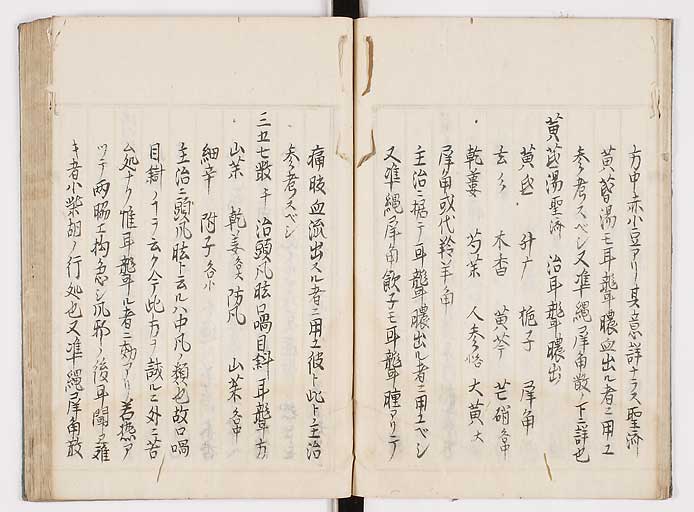 方中ニ赤小豆アリ其意詳ナラス聖済
黄芪湯モ耳聾膿血出ル者ニ用エ
参考スベシ又準縄犀角散ノ下ニ詳也
黄芪湯聖済 治耳聾膿出
黄芪 升广 梔子 犀角
玄参 木香 黄芩 芒硝各中
乾姜 芍薬 人参各 大黄大
犀角或代羚羊角
主治ニ据テ耳聾膿出ル者ニ用エベシ
又準縄犀角飲子モ耳聾腫アリテ
痛或血流出スル者ニ用エ彼ト此ト主治
参考スベシ
三五七散千 治頭風眩口喎目斜耳聾方
山茱 乾姜各大 防風 山薬各中
細辛 附子各小
主治ニ頭風眩ト云ルハ中風ノ類也故口喎
目斜ノイヲ云ク今此方ヲ試ルニ外ニ
処ナリ惟耳聾ル者ニ効アリ若
ツテ両脇エ拘急シ風邪ノ後耳聞
キ者小柴胡ノ行処也又準縄犀角散